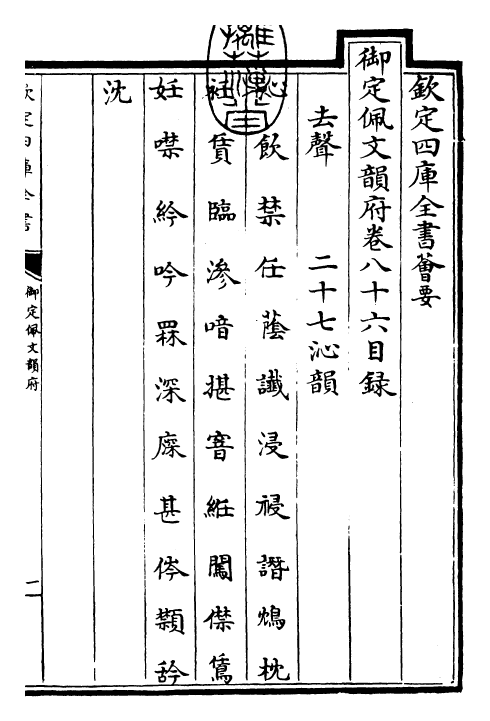 欽定四庫全書薈要
御定佩文韻府卷八十六目録
去聲 二十七沁韻
沁飲禁任蔭讖浸祲譖鴆枕
衽賃臨滲喑揕窨紝闖僸
妊噤紟吟罧深廕甚仱顉
沈
欽定四庫全書
御定佩文韻府